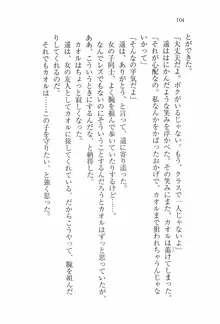 104
とができた。
「大丈夫だよ。ボクがいるもん。クラスで一人じゃないよ」
遥は、はにかんだような笑みを浮かべた。その笑みにまた、カオルは萌けてしまった。
「それが心配なの。私なんかをかばったおかげで、カオルまで狙われちゃうんじゃな
いかって」
「そんなの平気だよ」
遥は、ありがとう、と言って、遥に寄り添った。
女の子同士、よく腕を組んで歩いていたりするけど……。
なんでレズでもないのに、こんなことするんだろうとカオルはずっと不思議だったけ
ど、こういうときにするんだな、と納得した。
カオルはちょっと寂しくなった。
遥は、女の友人としてカオルに接してくれている。だからこうやって、腕を組んだ
りするんだ。
それでもカオルは……この子を守りたい、と強く思った。